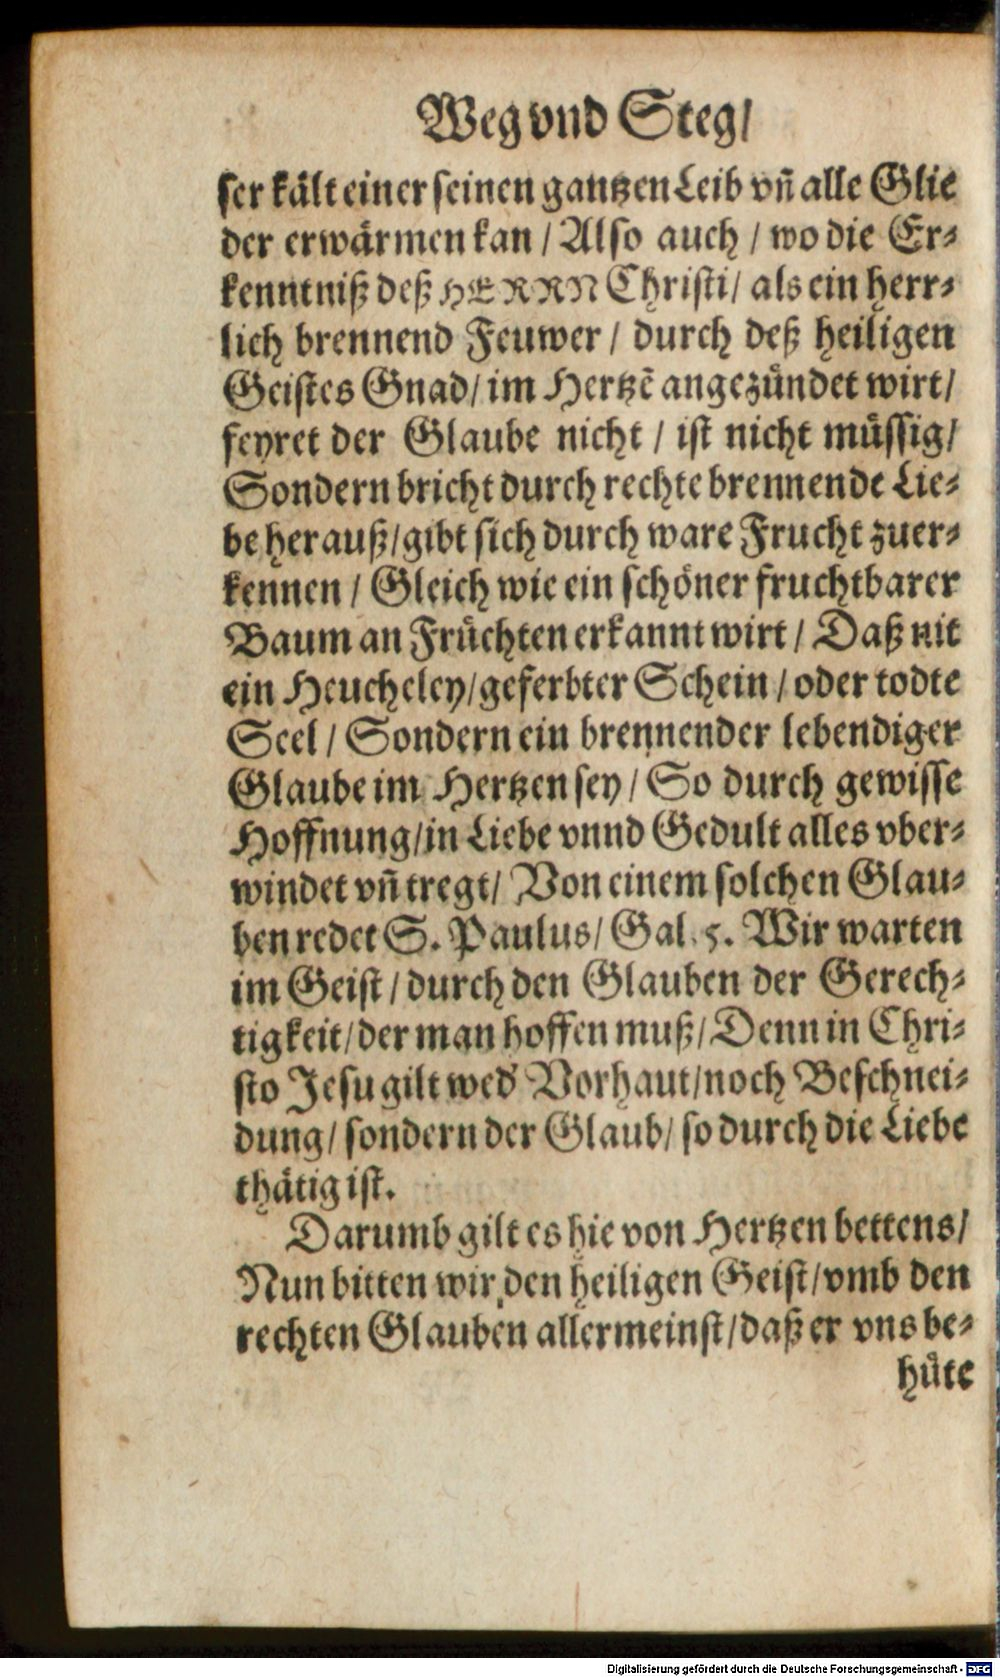 Weg vnd Steg/
ser kält einer seinen gantzen Leib vñ alle Glie
der erwärmen kan / Also auch / wo die Er⸗
kenntniß deß HERRN Christi/ als ein herr⸗
lich brennend Feuwer / durch deß heiligen
Geistes Gnad/ im Hertzẽ angezündet wirt/
feyret der Glaube nicht / ist nicht müssig/
Sondern bricht durch rechte brennende Lie⸗
be herauß/gibt sich durch ware Frucht zuer⸗
kennen / Gleich wie ein schöner fruchtbarer
Baum an Früchten erkannt wirt / Daß nit
ein Heucheley/geferbter Schein / oder todte
Seel / Sondern ein brennender lebendiger
Glaube im Hertzen sey / So durch gewisse
Hoffnung/in Liebe vnnd Gedult alles vber⸗
windet vñ tregt/ Von einem solchen Glau⸗
ben redet S. Paulus/ Gal. 5. Wir warten
im Geist / durch den Glauben der Gerech⸗
tigkeit/der man hoffen muß/ Denn in Chri⸗
sto Jesu gilt wed' Vorhaut/noch Beschnei⸗
dung/ sondern der Glaub/ so durch die Liebe
thätig ist.
Darumb gilt es hie von Hertzen bettens/
Nun bitten wir den heiligen Geist/vmb den
rechten Glauben allermeinst/daß er vns be⸗
hüte
Digitalisierung gefördert durch die Deutsche Forschungsgemeinschaft - DFG